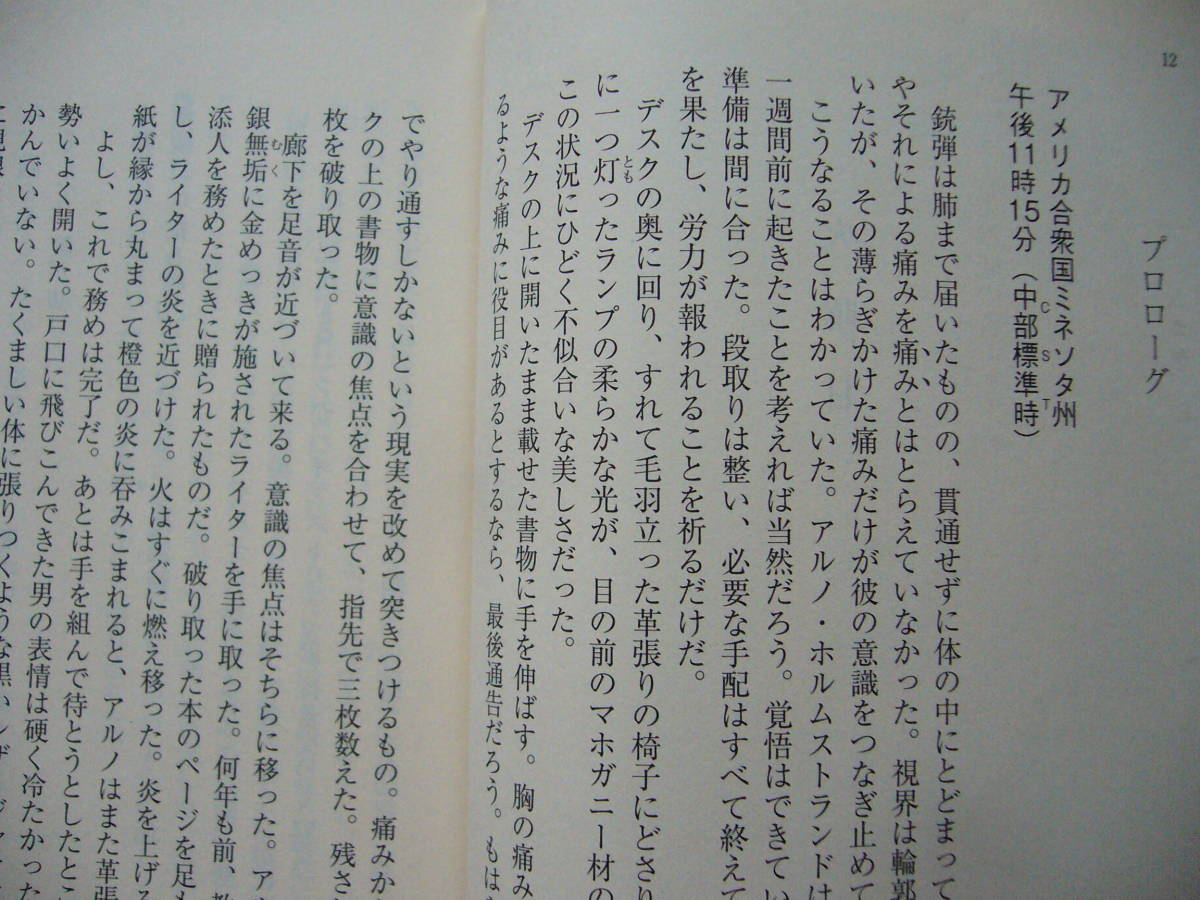 12
プロローグ
アメリカ合衆国ミネソタ州
午後11時15分（中部標準時）
CST
銃弾は肺まで届いたものの、貫通せずに体の中にとどまって
やそれによる痛みを痛みとはとらえていなかった。視界は輪郭
いたが、その薄らぎかけた痛みだけが彼の意識をつなぎ止めて
こうなることはわかっていた。アルノ・ホルムストランドは
一週間前に起きたことを考えれば当然だろう。覚悟はできてい
準備は間に合った。段取りは整い、必要な手配はすべて終えて
を果たし、労力が報われることを祈るだけだ。
デスクの奥に回り、すれて毛羽立った革張りの椅子にどさり
に一つ灯ったランプの柔らかな光が、目の前のマホガニー材の
とも
この状況にひどく不似合いな美しさだった。
デスクの上に開いたまま載せた書物に手を伸ばす。胸の痛み
るような痛みに役目があるとするなら、最後通告だろう。もは
でやり通すしかないという現実を改めて突きつけるもの。痛みか
クの上の書物に意識の焦点を合わせて、指先で三枚数えた。残さ
枚を破り取った。
廊下を足音が近づいて来る。意識の焦点はそちらに移った。ア
銀無垢に金めっきが施されたライターを手に取った。何年も前、教
むく
添人を務めたときに贈られたものだ。破り取った本のページを足も
し、ライターの炎を近づけた。火はすぐに燃え移った。炎を上げる
紙が縁から丸まって橙色の炎に呑みこまれると、アルノはまた革張
よし、これで務めは完了だ。あとは手を組んで待とうとしたとこ
勢いよく開いた。戸口に飛びこんできた男の表情は硬く冷たかった
かんでいない。たくましい体に張りつくような黒い